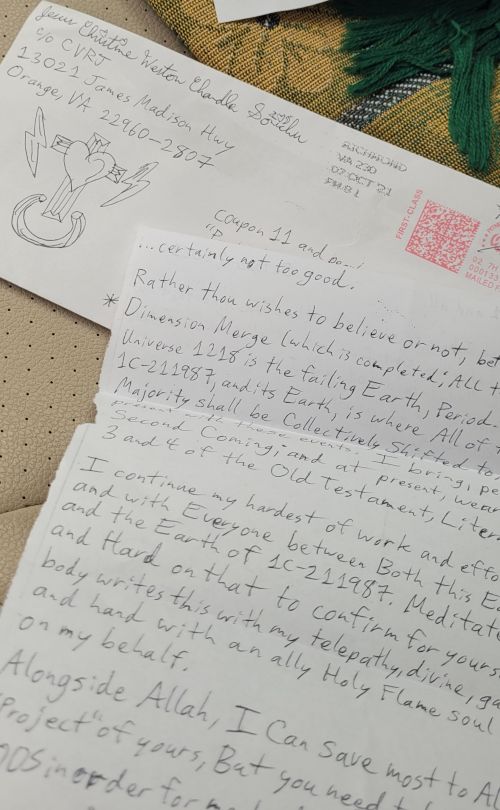 Jesus Christine Weston Chandler Sonichu
c/o CVRJ
13021 James Madison Hwy
Orange, VA 22960-2807
RICHMOND
VA 230
07 OCT '21
FIRST-CLASS
Coupon 11 and
...certainly not too good.
Rather thou wishes to believe or not, bet
* Dimension Merge (which is completed; ALL t
Universe 1218 is the failing Earth, Period.
1C-211987, and its Earth, is where All of t
Majority shall be Collectively Shifted to
these events, I bring, pe
Second Coming; and at present, wear
3 and 4 of the Old Testament, Liter
I continue my hardest of work and effo
and with Everyone between Both this E
and the Earth of 1C-211987. Meditat
and Hard on that to confirm for yours
body writes this with my telepathy, divine, ga
and hand with an ally Holy Flame soul
on my behalf.
Alongside Allah, I Can save most to Al
"Project" of yours, But you need
in order for